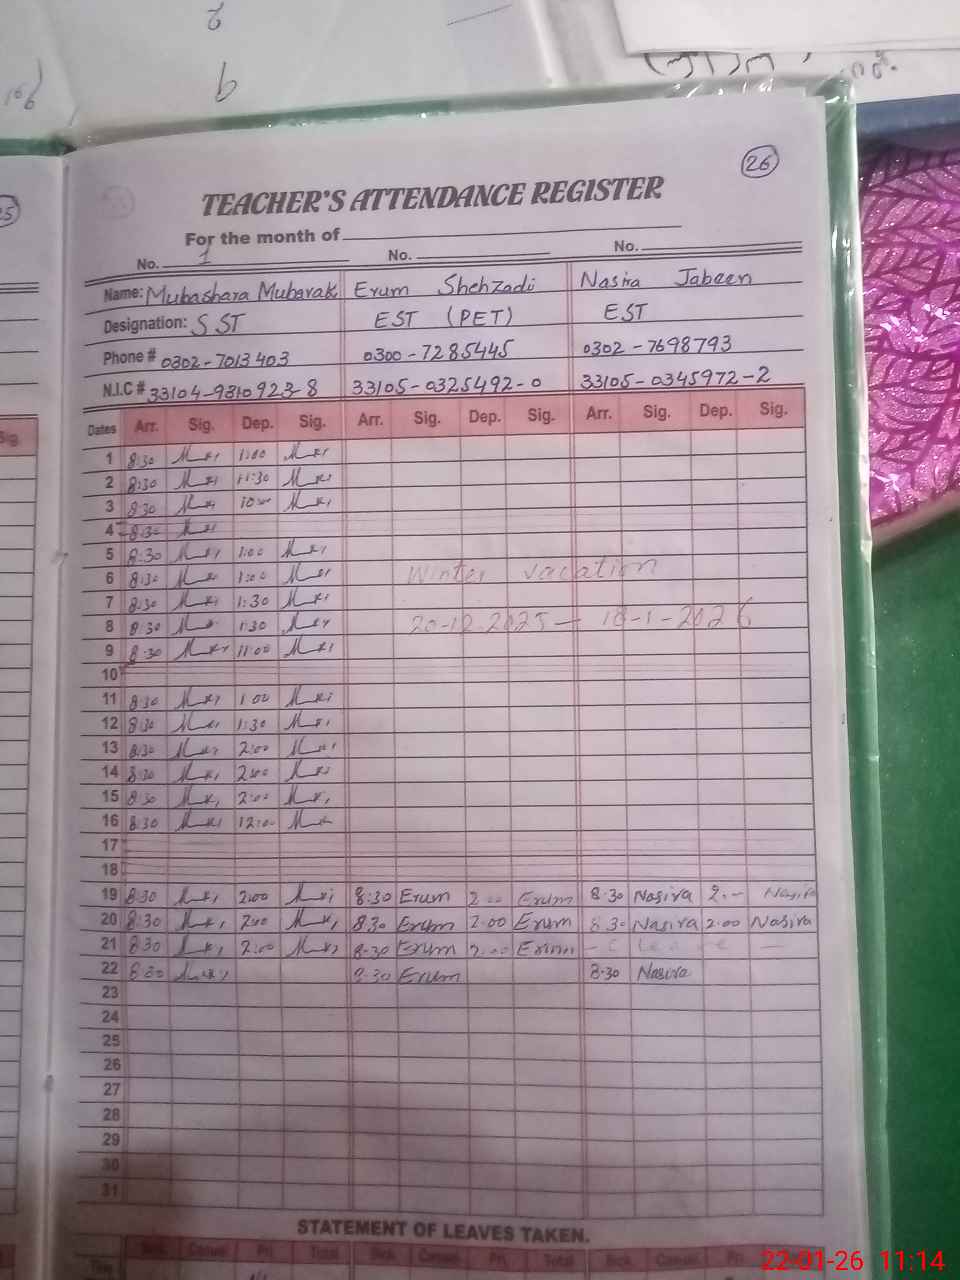 26
TEACHER'S ATTENDANCE REGISTER
For the month of
No. 1 No. No.
Name: Mubashara Mubarak Erum Shehzadi Nasira Jabeen
Designation: SST EST (PET) EST
Phone # 0302-7013403 0300-7285445 0302-7698793
N.I.C # 33104-9310923-8 33105-0325492-0 33105-0345972-2
Dates Arr. Sig. Dep. Sig. Arr. Sig. Dep. Sig. Arr. Sig. Dep. Sig.
1 8:30 1:00
2 8:30 11:30
3 8:30
4 8:30
5 8:30 1:00
6 8:30 1:00 Winter vacation
7 8:30 1:30
8 8:30 1:30 20-12-2025 — 18-1-2026
9 8:30 11:00
10
11 8:30 1:00
12 8:30 1:30
13 8:30 2:00
14 8:30 2:00
15 8:30 2:00
16 8:30 12:00
17
18
19 8:30 2:00 8:30 Erum 2:00 Erum 8:30 Nasira 2:- Nasira
20 8:30 2:00 8:30 Erum 2:00 Erum 8:30 Nasira 2:00 Nasira
21 8:30 2:00 8:30 Erum 2:00 Erum — C leave —
22 8:30 8:30 Erum 8:30 Nasira
23
24
25
26
27
28
29
30
31
STATEMENT OF LEAVES TAKEN.
Sick Casual Pri. Total Sick Casual Pri. Total Sick Casual Pri.
22-01-26 11:14